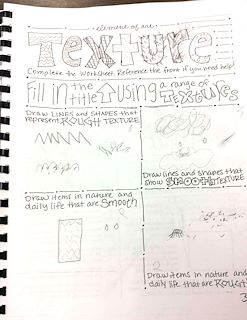 element of art
Texture
Complete the worksheet. Reference the front if you need help!
Fill in the title ↑ using a range of textures
Draw LINES and SHAPES that
represent ROUGH TEXTURE
Draw lines and shapes that
show SMOOTH TEXTURE
Draw items in nature and
daily life that are Smooth
Draw items in nature and
daily life that are ROUGH
3